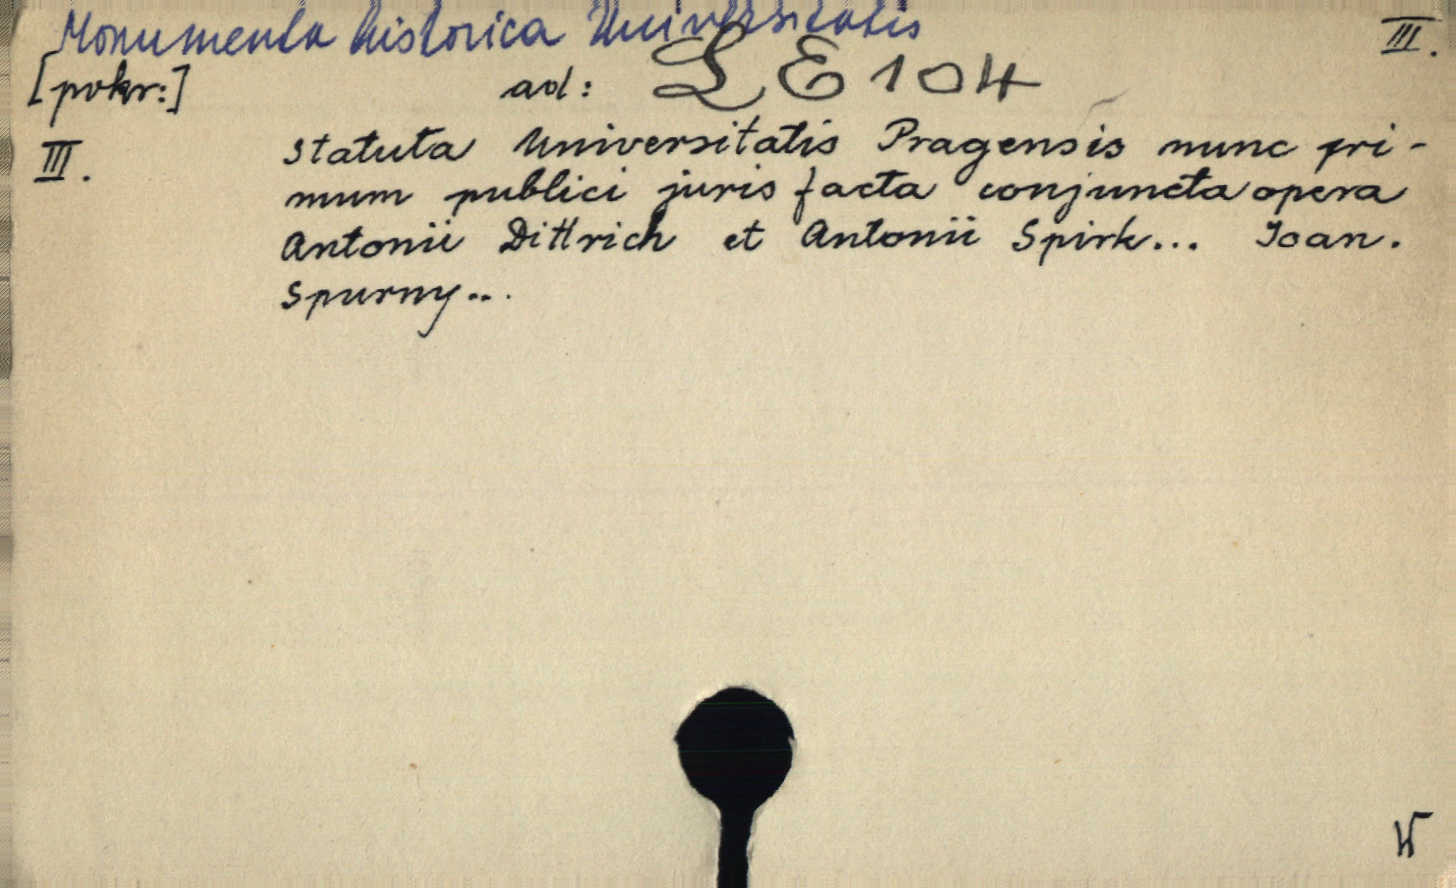 Monumenta historica Universitatis III.
[pokr:] ad: L E 104
III. Statuta Universitatis Pragensis nunc pri-
mum publici juris facta conjuncta opera
Antonii Dittrich et Antonii Spirk... Ioan.
Spurny...
W